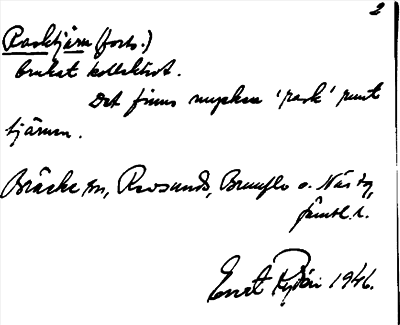 2
Rasktjärn (forts.)
brukat kollektivt.
Det finns mycken 'rask' runt
tjärnen.
Bräcke sn, Revsunds, Brunflo o. Näs tg,
Jämtl. l.
Ernst 1946.